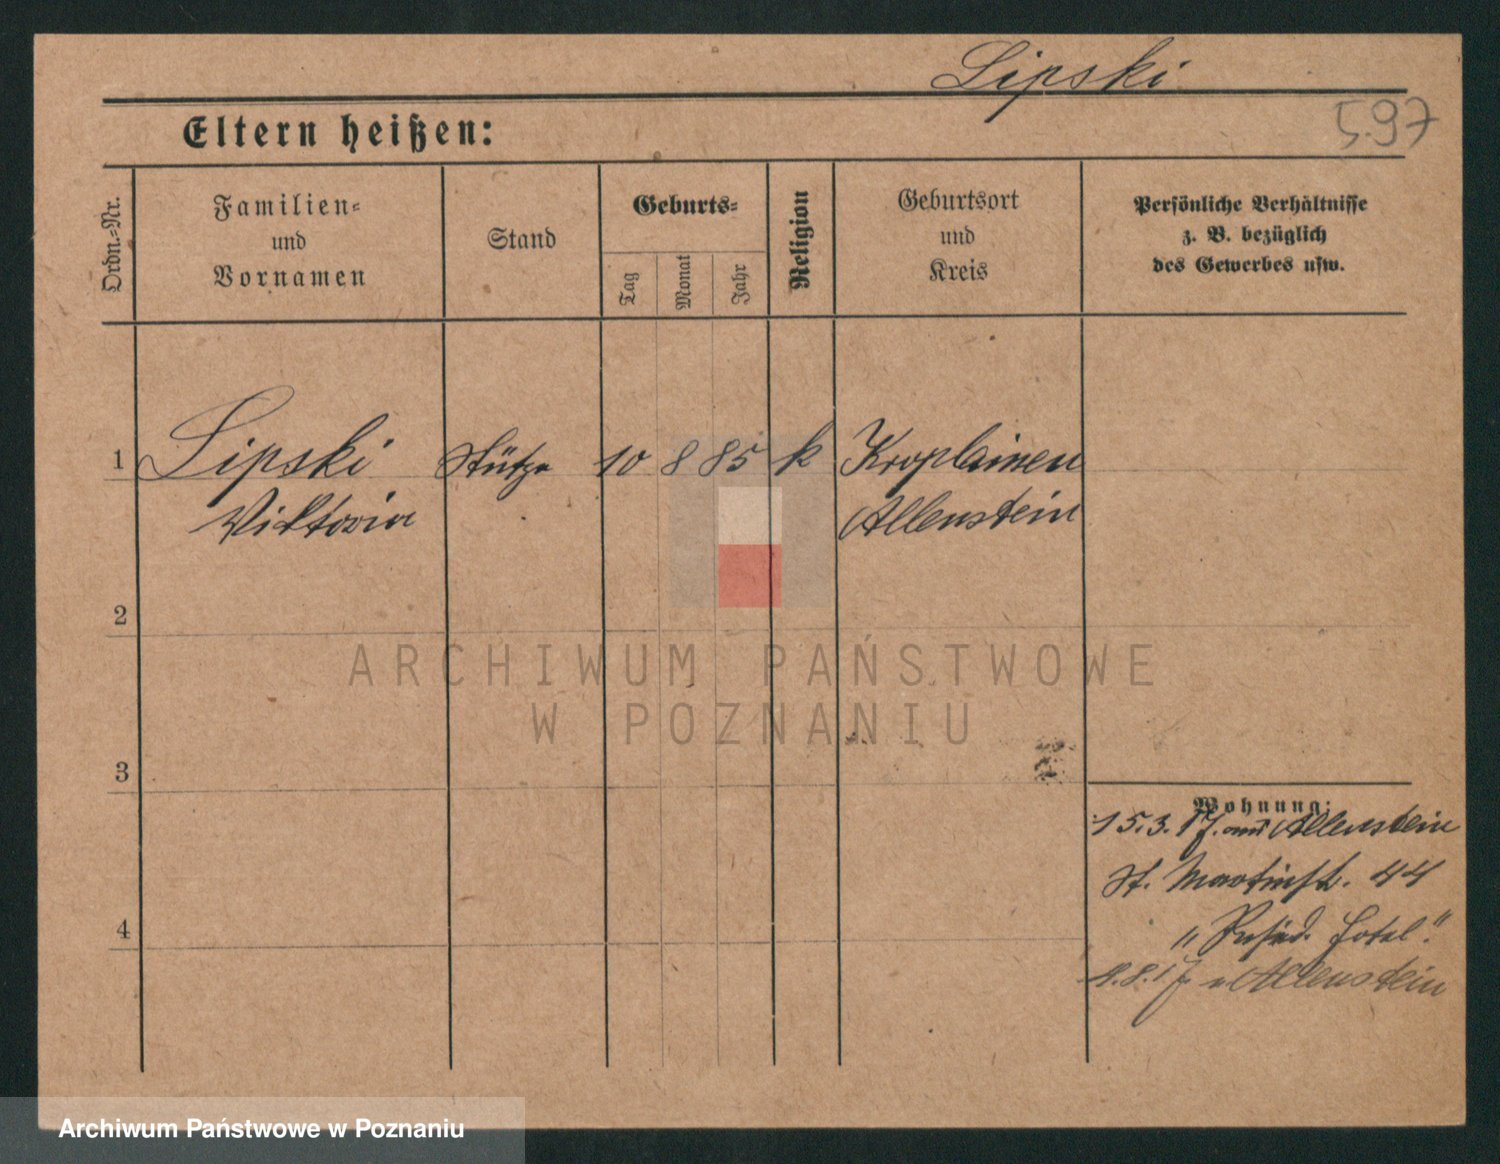 Lipski
597
Eltern heißen:
Ordn.-Nr.
Familien-
und
Vornamen
Stand
Geburts-
Tag
Monat
Jahr
Religion
Geburtsort
und
Kreis
Persönliche Verhältnisse
z. B. bezüglich
des Gewerbes usw.
1 Lipski Stütze 10 8 85 k Kroplainen
Viktoria Allenstein
2
ARCHIWUM PAŃSTWOWE
W POZNANIU
3
Wohnung:
15.3.17. aus Allenstein
St. Martinstr. 44
4
"Resid. Hotel."
8.17 n. Allenstein
Archiwum Państwowe w Poznaniu